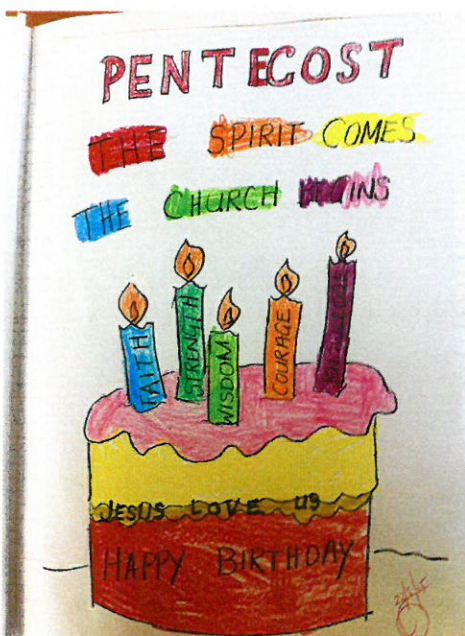 PENTECOST
THE SPIRIT COMES
THE CHURCH BEGINS
FAITH
STRENGTH
WISDOM
COURAGE
JESUS LOVE US
HAPPY BIRTHDAY